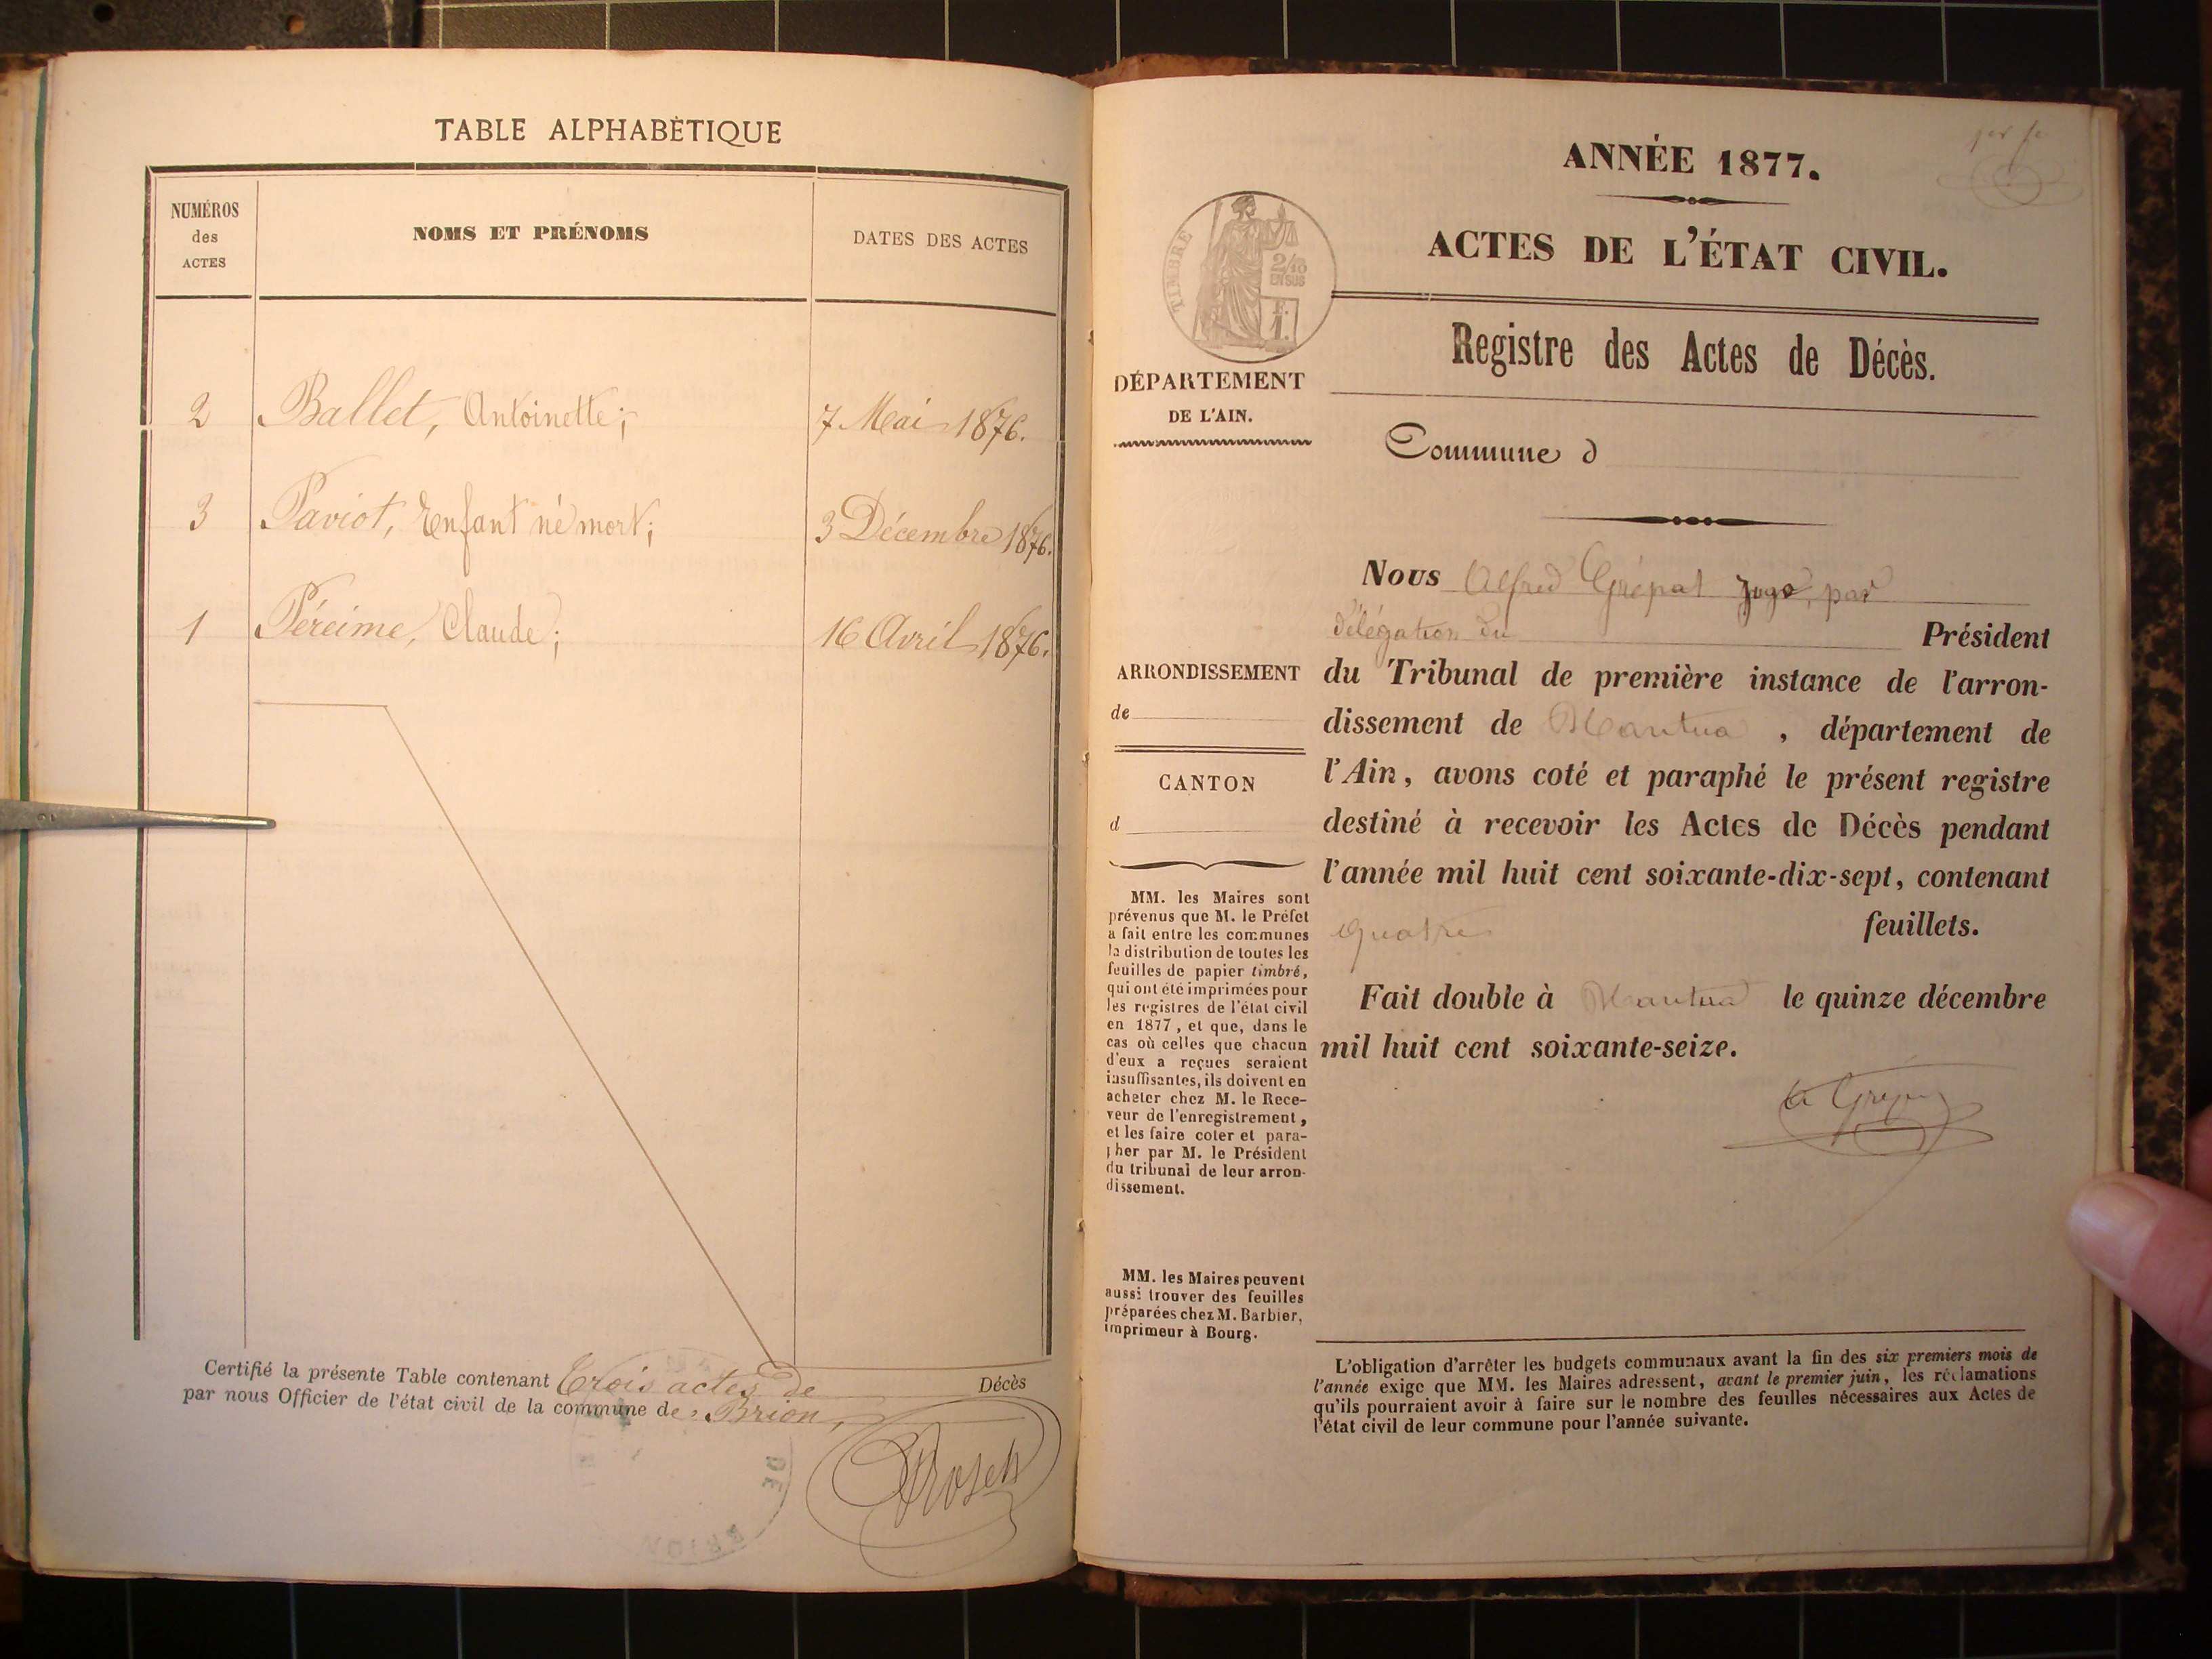 TABLE ALPHABÉTIQUE
NUMÉROS
des
ACTES
NOMS ET PRÉNOMS
DATES DES ACTES
2 Ballet, Antoinette; 7 Mai 1876.
3 Paviot, Enfant né mort; 3 Décembre 1876.
1 Péreime, Claude; 16 Avril 1876.
Certifié la présente Table contenant Trois actes de Décès
par nous Officier de l'état civil de la commune de Brion,
DE BRION
ANNÉE 1877.
ACTES DE L'ÉTAT CIVIL.
TIMBRE
2/10
EN SUS
F.
1.
Registre des Actes de Décès.
DÉPARTEMENT
DE L'AIN.
Commune d
Nous Alfred Grépat Juge, par
délégation du Président
du Tribunal de première instance de l'arron-
dissement de Nantua, département de
l'Ain, avons coté et paraphé le présent registre
destiné à recevoir les Actes de Décès pendant
l'année mil huit cent soixante-dix-sept, contenant
quatre feuillets.
Fait double à Nantua le quinze décembre
mil huit cent soixante-seize.
ARRONDISSEMENT
de
CANTON
d
MM. les Maires sont
prévenus que M. le Préfet
a fait entre les communes
la distribution de toutes les
feuilles de papier timbré,
qui ont été imprimées pour
les registres de l'état civil
en 1877, et que, dans le
cas où celles que chacun
d'eux a reçues seraient
insuffisantes, ils doivent en
acheter chez M. le Rece-
veur de l'enregistrement,
et les faire coter et para-
pher par M. le Président
du tribunal de leur arron-
dissement.
MM. les Maires peuvent
aussi trouver des feuilles
préparées chez M. Barbier,
imprimeur à Bourg.
L'obligation d'arrêter les budgets communaux avant la fin des six premiers mois de
l'année exige que MM. les Maires adressent, avant le premier juin, les réclamations
qu'ils pourraient avoir à faire sur le nombre des feuilles nécessaires aux Actes de
l'état civil de leur commune pour l'année suivante.